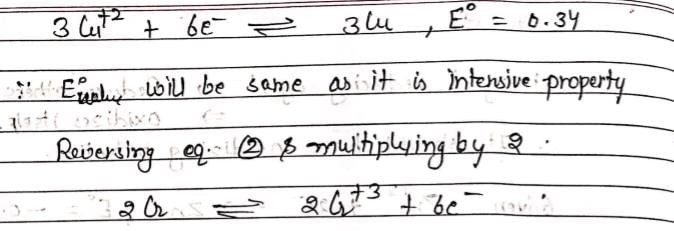 3 Cu⁺² + 6e⁻ ⇌ 3Cu , E° = 0.34
∵ E°value will be same as it is intensive property
Reversing eq. ② & multiplying by 2 .
2 Cr ⇌ 2 Cr⁺³ + 6e⁻